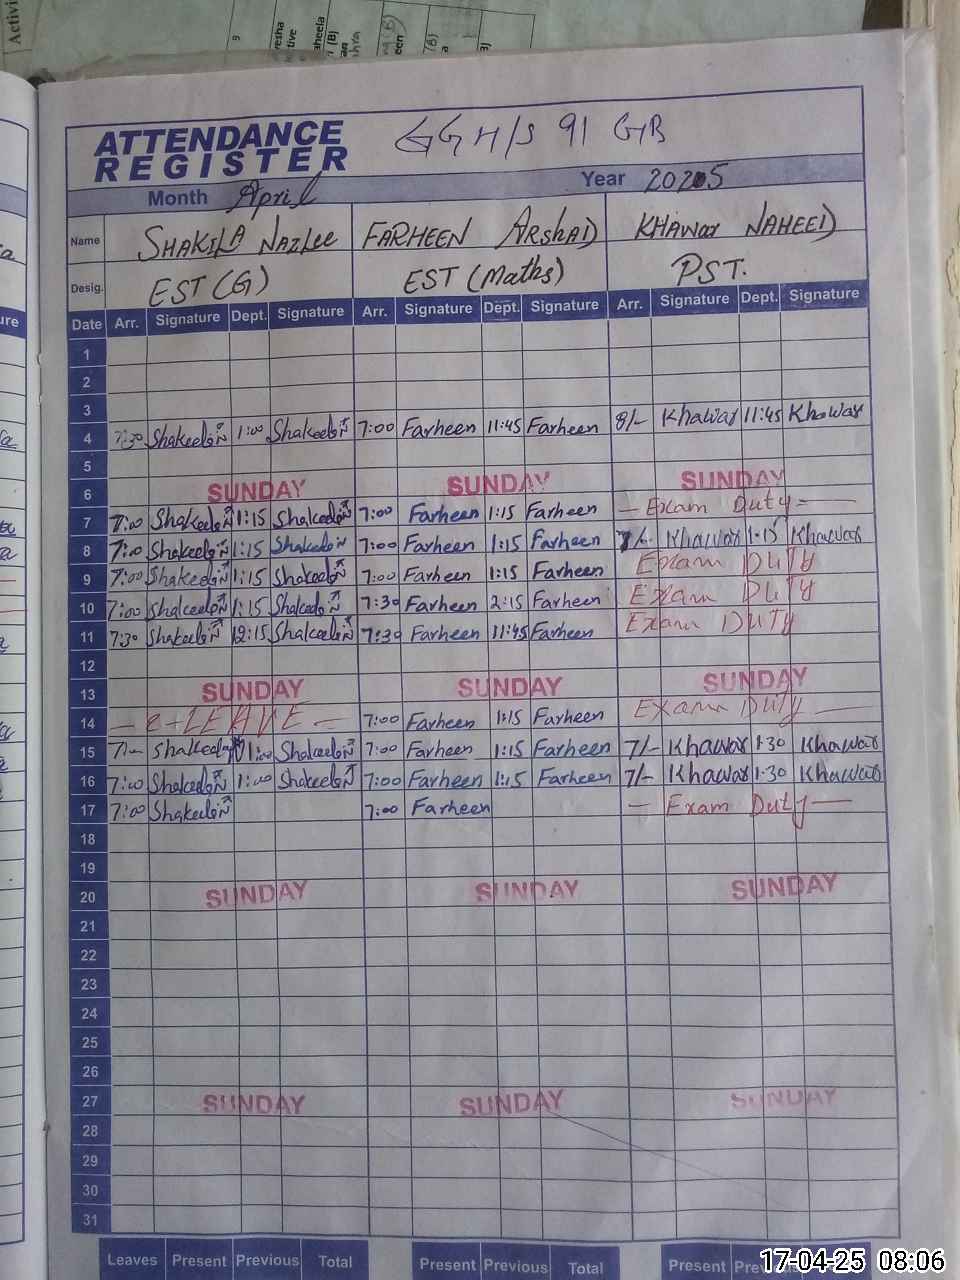 Activi
9
resha
tive
aheela
(B)
een
(B)
ATTENDANCE
REGISTER
GGH/S 91 GB
Month April Year 2025
Name SHAKILA NAZLEE FARHEEN ARSHAD KHAWAR NAHEED
Desig. EST (G) EST (Maths) PST.
Date Arr. Signature Dept. Signature Arr. Signature Dept. Signature Arr. Signature Dept. Signature
1
2
3
4 7:30 Shakeela N 1:00 Shakeela N 7:00 Farheen 11:45 Farheen 8/- Khawar 11:45 Khawar
5
6 SUNDAY SUNDAY SUNDAY
7 7:00 Shakeela N 1:15 Shakeela N 7:00 Farheen 1:15 Farheen — Exam Duty —
8 7:00 Shakeela N 1:15 Shakeela N 7:00 Farheen 1:15 Farheen 7/- Khawar 1:15 Khawar
9 7:00 Shakeela N 1:15 Shakeela N 7:00 Farheen 1:15 Farheen Exam DUTY
10 7:00 Shakeela N 1:15 Shakeela N 7:30 Farheen 2:15 Farheen Exam DUTY
11 7:30 Shakeela N 12:15 Shakeela N 7:30 Farheen 11:45 Farheen Exam DUTY
12
13 SUNDAY SUNDAY SUNDAY
14 — C-LEAVE — 7:00 Farheen 1:15 Farheen Exam Duty —
15 7:— Shakeela N 1:00 Shakeela N 7:00 Farheen 1:15 Farheen 7/- Khawar 1:30 Khawar
16 7:00 Shakeela N 1:00 Shakeela N 7:00 Farheen 1:15 Farheen 7/- Khawar 1:30 Khawar
17 7:00 Shakeela N 7:00 Farheen — Exam Duty —
18
19
20 SUNDAY SUNDAY SUNDAY
21
22
23
24
25
26
27 SUNDAY SUNDAY SUNDAY
28
29
30
31
Leaves Present Previous Total Present Previous Total Present
17-04-25 08:06